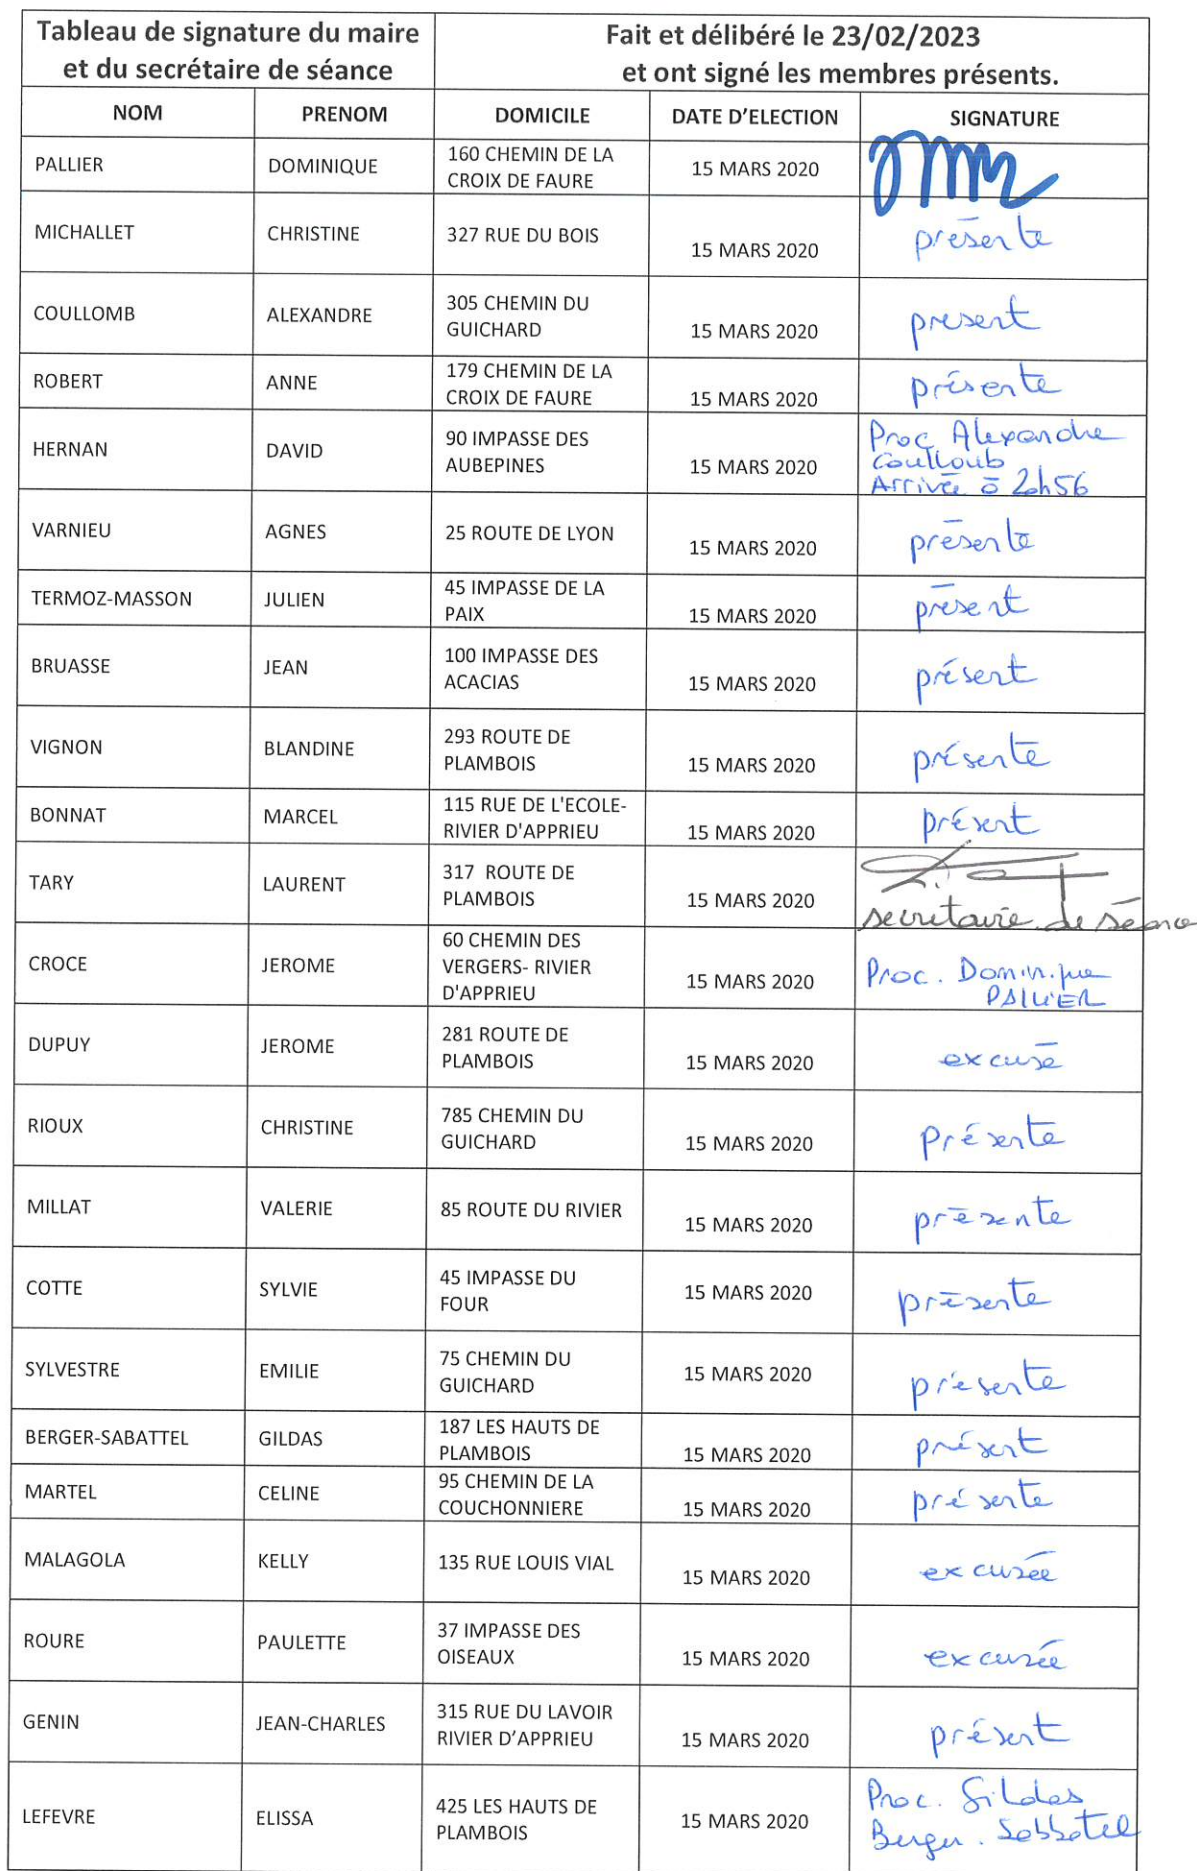 Tableau de signature du maire
et du secrétaire de séance
Fait et délibéré le 23/02/2023
et ont signé les membres présents.
NOM PRENOM DOMICILE DATE D'ELECTION SIGNATURE
PALLIER DOMINIQUE 160 CHEMIN DE LA
CROIX DE FAURE 15 MARS 2020
MICHALLET CHRISTINE 327 RUE DU BOIS 15 MARS 2020 présente
COULLOMB ALEXANDRE 305 CHEMIN DU
GUICHARD 15 MARS 2020 present
ROBERT ANNE 179 CHEMIN DE LA
CROIX DE FAURE 15 MARS 2020 présente
HERNAN DAVID 90 IMPASSE DES
AUBEPINES 15 MARS 2020
Proc Alexandre
Coulloub
Arrivée à 20h56
VARNIEU AGNES 25 ROUTE DE LYON 15 MARS 2020 présente
TERMOZ-MASSON JULIEN 45 IMPASSE DE LA
PAIX 15 MARS 2020 présent
BRUASSE JEAN 100 IMPASSE DES
ACACIAS 15 MARS 2020 présent
VIGNON BLANDINE 293 ROUTE DE
PLAMBOIS 15 MARS 2020 présente
BONNAT MARCEL 115 RUE DE L'ECOLE-
RIVIER D'APPRIEU 15 MARS 2020 présent
TARY LAURENT 317 ROUTE DE
PLAMBOIS 15 MARS 2020
secretaire de séance
CROCE JEROME 60 CHEMIN DES
VERGERS- RIVIER
D'APPRIEU 15 MARS 2020
Proc. Dominique
PALLIER
DUPUY JEROME 281 ROUTE DE
PLAMBOIS 15 MARS 2020 excusé
RIOUX CHRISTINE 785 CHEMIN DU
GUICHARD 15 MARS 2020 Présente
MILLAT VALERIE 85 ROUTE DU RIVIER 15 MARS 2020 présente
COTTE SYLVIE 45 IMPASSE DU
FOUR 15 MARS 2020 présente
SYLVESTRE EMILIE 75 CHEMIN DU
GUICHARD 15 MARS 2020 présente
BERGER-SABATTEL GILDAS 187 LES HAUTS DE
PLAMBOIS 15 MARS 2020 présent
MARTEL CELINE 95 CHEMIN DE LA
COUCHONNIERE 15 MARS 2020 présente
MALAGOLA KELLY 135 RUE LOUIS VIAL 15 MARS 2020 excusée
ROURE PAULETTE 37 IMPASSE DES
OISEAUX 15 MARS 2020 excusée
GENIN JEAN-CHARLES 315 RUE DU LAVOIR
RIVIER D'APPRIEU 15 MARS 2020 présent
LEFEVRE ELISSA 425 LES HAUTS DE
PLAMBOIS 15 MARS 2020
Proc. Gildas
Berger. Sabbatel